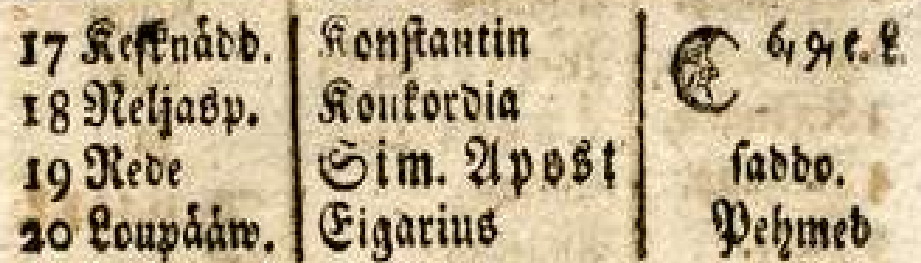 17 Keſknådd. Konſtantin 6, 9, e. L.
18 Neljasp. Konkordia
19 Rede Sim. Apost ſaddo.
20 Loupååw. Eigarius Pehmed